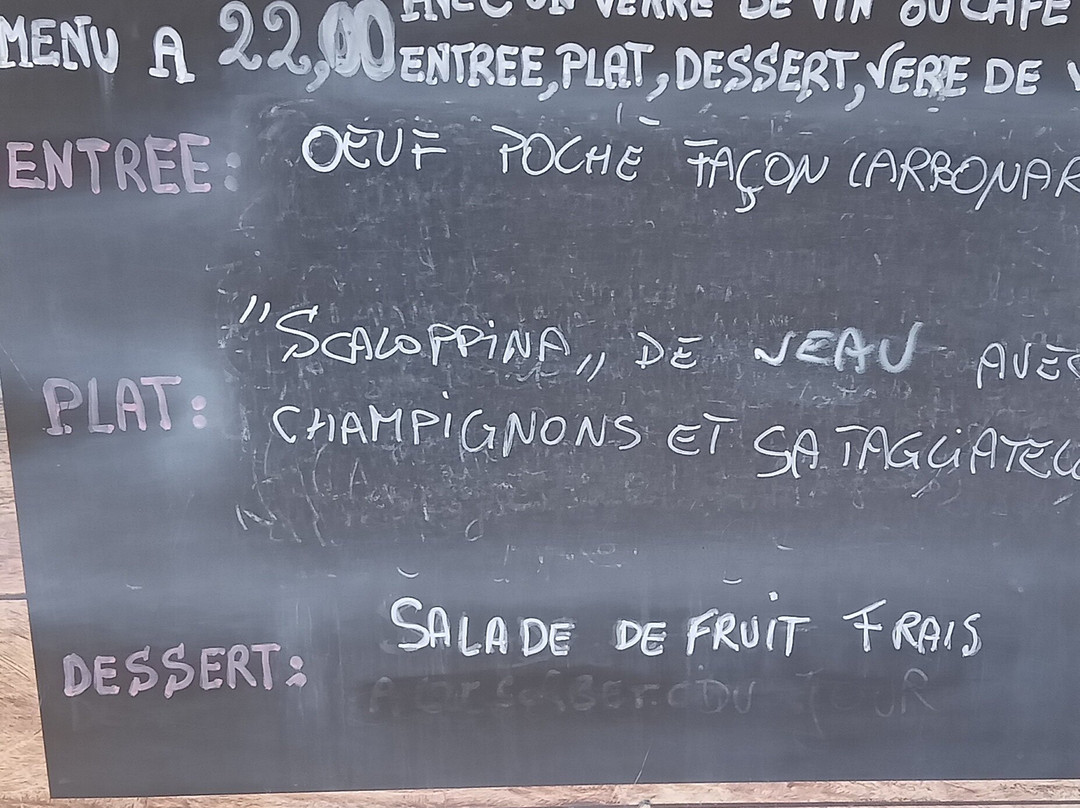 AVEC UN VERRE DE VIN OU CAFE
MENU A 22,00
ENTREE, PLAT, DESSERT, VERRE DE V
ENTREE: OEUF POCHE FAÇON CARBONAR
"SCALOPPINA" DE VEAU AVEC
PLAT:
CHAMPIGNONS ET SA TAGLIATELL
SALADE DE FRUIT FRAIS
DESSERT:
DU JOUR